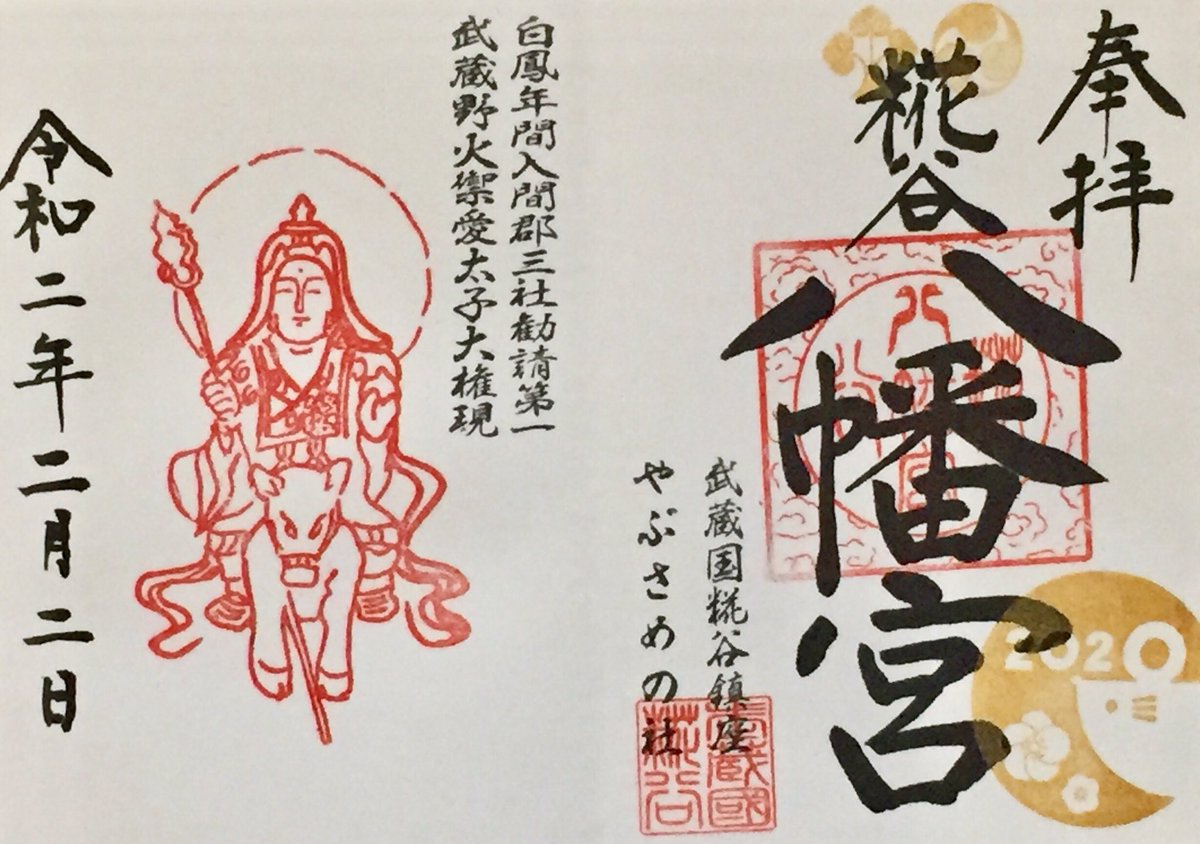 奉拝
糀谷
八幡宮
武蔵国糀谷鎮座
やぶさめの社
2020
白鳳年間入間郡三社勧請第一
武蔵野火禦愛太子大権現
令和二年二月二日
武蔵國
糀谷